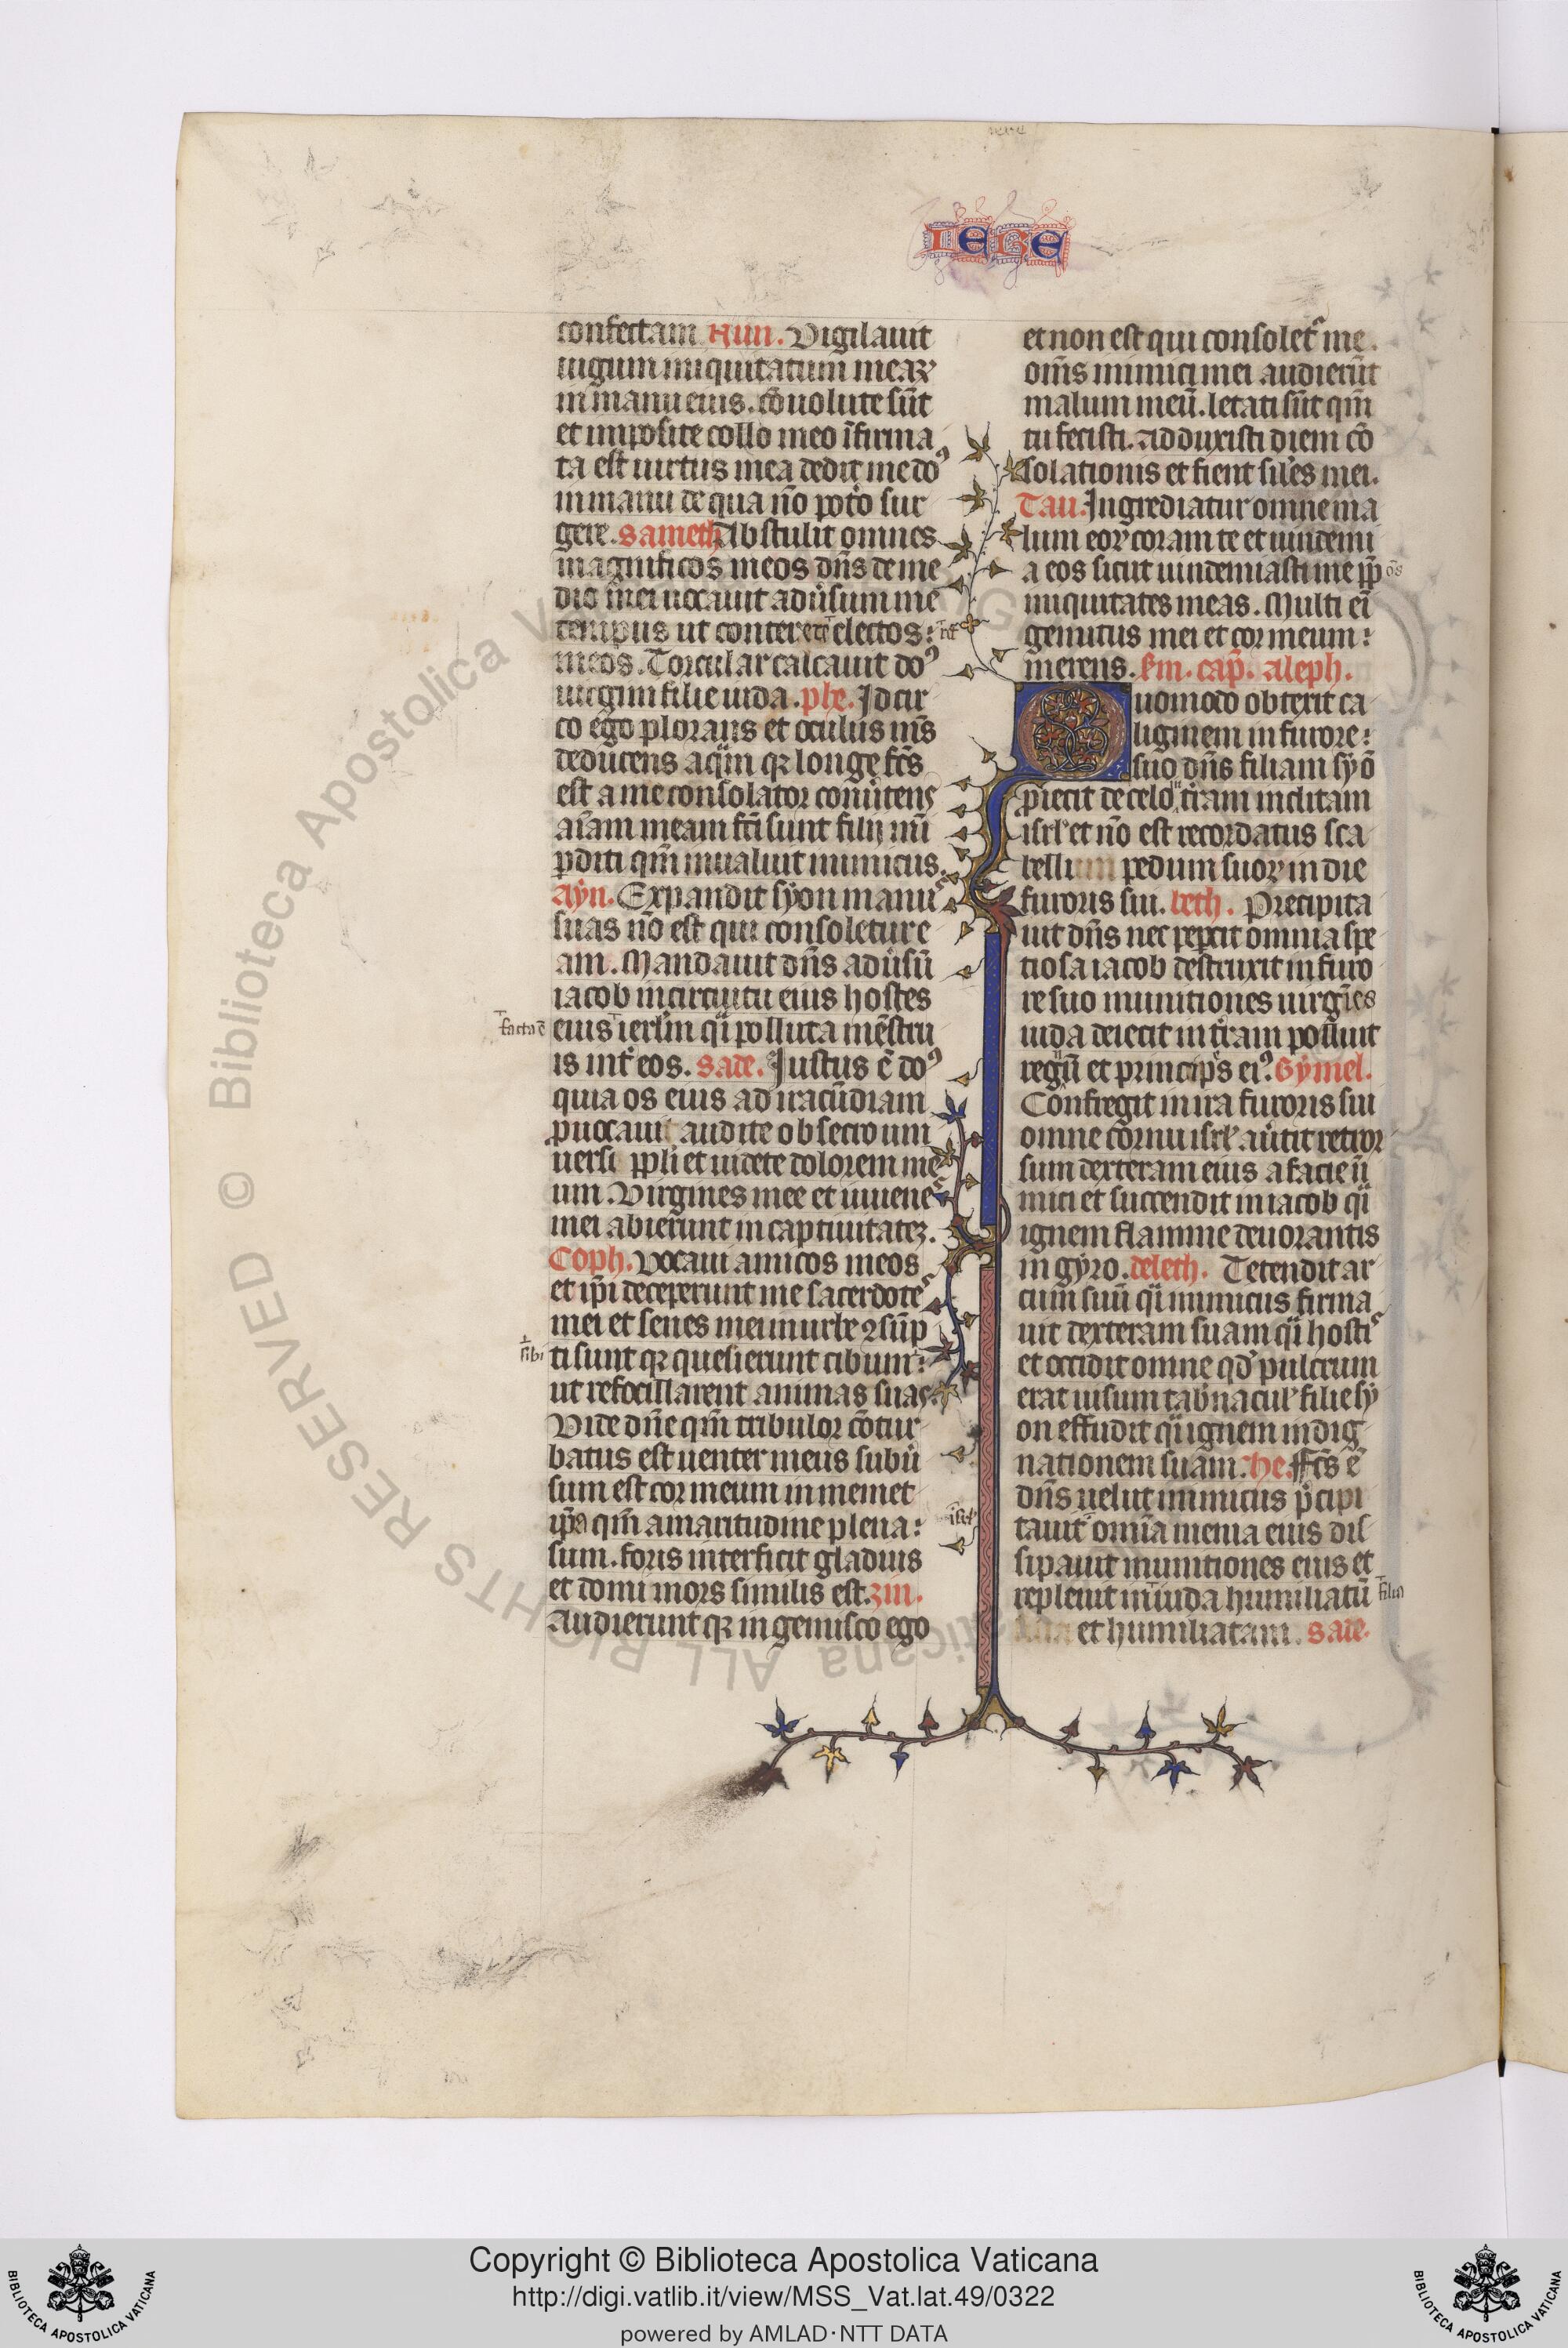 IERE
confectam Nun. Vigilauit
iugum iniquitatum meaꝝ
in manu eius. ↄ̃uolute sūt
et imposite collo meo ĩfirma
ta est uirtus mea dedit me doꝰ
in manu de qua nō pot̾o sur
gere. Sameth Abstulit omnes
magnificos meos dn̄s de me
dio mei uocauit adũsum me
tempus ut contereret electos
meos. Torcular calcauit doꝰ
uirgini filie iuda. phe. Idcir
co ego plorans et oculus m̄s
deducens aquā qꝛ longe fc̄s
est a me consolator conũtens
aīam meam fc̄i sunt filij m̄i
ꝑditi qm̄ inualuit inimicus.
Ayn. Expandit syon manus
suas nō est qui consoletur e
am. Mandauit dn̄s adũsū
iacob in circuitu eius hostes
facta ē
eius ierl̄m q̄i polluta mēstru
is int̾ eos. Sade. Iustus ē doꝰ
quia os eius ad iracūdiam
ꝓuocaui audite obsecro uni
uersi ppl̄i et uidete dolorem me
um. Virgines mee et iuuenes
mei abierunt in captiuitateꝫ.
Coph. Vocaui amicos meos
et ip̄i deceperunt me sacerdotes
mei et senes mei in urbe ꝯsūp
sibi
ti sunt qꝛ quesierunt cibum
ut refocillarent animas suas.
Vide dn̄e qm̄ tribulor cōtur
batus est uenter meus subũ
sum est cor meum in memet
ip̄a qm̄ amaritudine plena
sum. foris interficit gladius
et domi mors similis est. zin.
Audierunt qꝛ ingemisco ego
et non est qui consolet᷑ me.
om̄s inimici mei audierūt
malum meū. letati sūt qm̄
tu fecisti. adduxisti diem cō
solationis et fient sil̄es mei.
Tau. Ingrediatur omne ma
lum eoꝝ coram te et uindemi
a eos sicut uindemiasti me ꝓp
iniquitates meas. Multi eī
gemitus mei et cor meum
merens. ẜm. cap̄. aleph.
Quomodo obtexit ca
liginem in furore
suo dn̄s filiam syō
ꝓiecit de celo t̾ram inclitam
isrl̾ et nō est recordatus sca
belli pedum suoꝝ in die
furoris sui. beth. Precipita
uit dn̄s nec pepcit omnia spe
ciosa iacob destruxit in furo
re suo munitiones uirgīes
iuda deiecit in t̾ram polluit
regnū et princip̄s eiꝰ. Gymel.
Confregit in ira furoris sui
omne cornu isrl̾ aũtit retror
sum dexteram eius a facie ini
mici et succendit in iacob q̄i
ignem flamme deuorantis
in gyro. deleth. Tetendit ar
cum suū q̄i inimicus firma
uit dexteram suam q̄i hostis
et occidit omne qd̾ pulcrum
erat uisum tab̾nacul̾ filie sy
on effudit q̄i ignem indig
nationem suam. he. Fc̄s ē
isrl̾
dn̄s uelut inimicus p̄cipi
tauit omīa menia eius dis
sipauit munitiones eius et
repleuit in iuda humiliatū
et humiliatam. Sade.
BIBLIOTECA APOSTOLICA VATICANA
Copyright © Biblioteca Apostolica Vaticana
http://digi.vatlib.it/view/MSS_Vat.lat.49/0322
powered by AMLAD·NTT DATA
BIBLIOTECA APOSTOLICA VATICANA